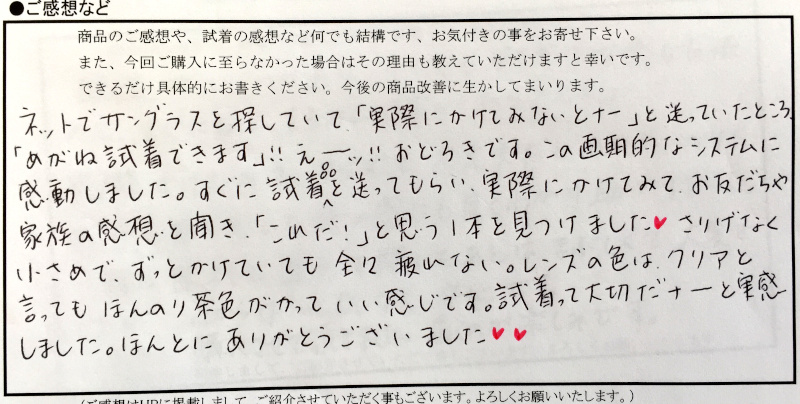 ●ご感想など
商品のご感想や、試着の感想など何でも結構です、お気付きの事をお寄せ下さい。
また、今回ご購入に至らなかった場合はその理由も教えていただけますと幸いです。
できるだけ具体的にお書きください。今後の商品改善に生かしてまいります。
ネットでサングラスを探していて、「実際にかけてみないとナー」と迷っていたところ、
「めがね試着できます」!! えーーッ!! おどろきです。この画期的なシステムに
感動しました。すぐに試着を送ってもらい、実際にかけてみて、お友だちや
家族の感想を聞き、「これだ!」と思う1本を見つけました♥ さりげなく
小さめで、ずっとかけていても全々疲れない。レンズの色は、クリアと
言ってもほんのり茶色がかっていい感じです。試着って大切だナーと実感
しました。ほんとにありがとうございました♥♥
(ご感想はHPに掲載しまして、ご紹介させていただく事もございます。よろしくお願いいたします。)